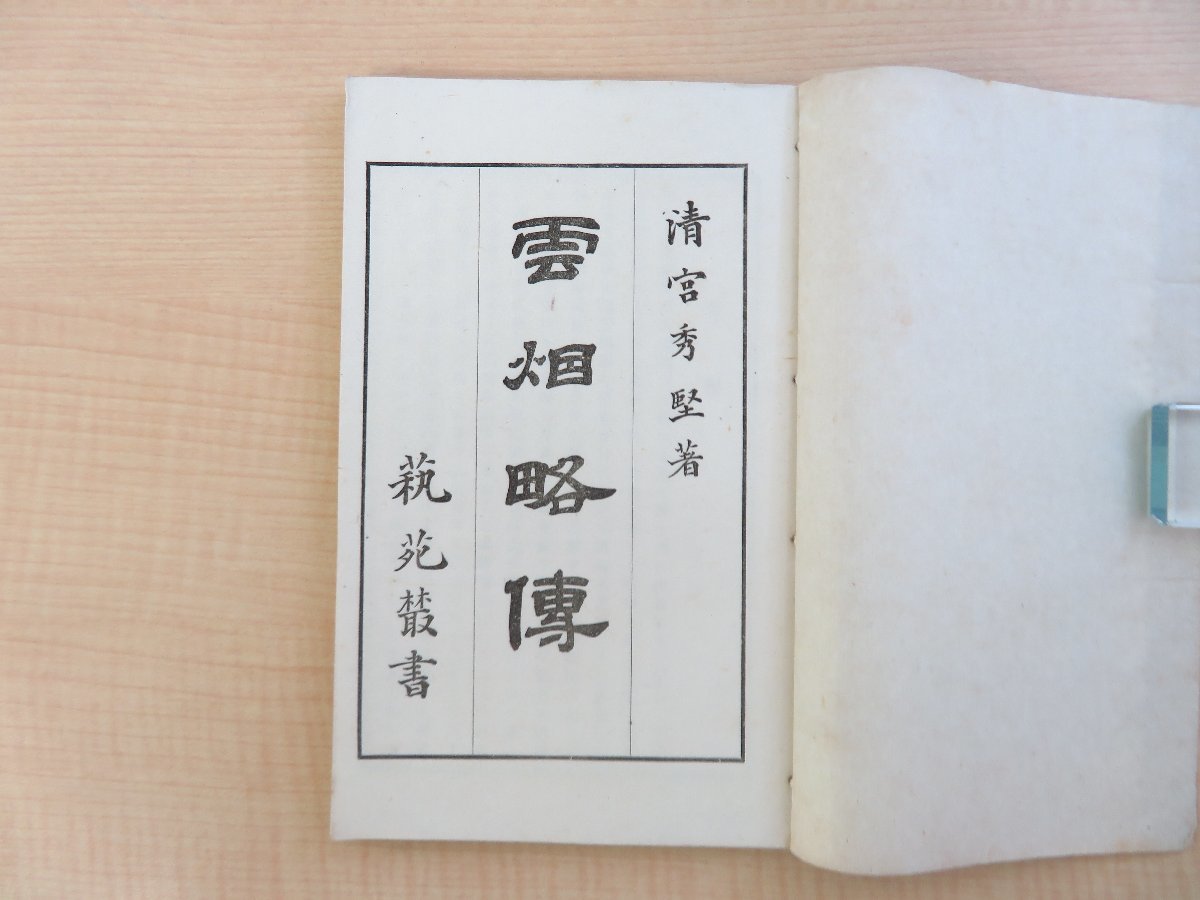 清宮秀堅著
雲烟略傳
蓺苑叢書